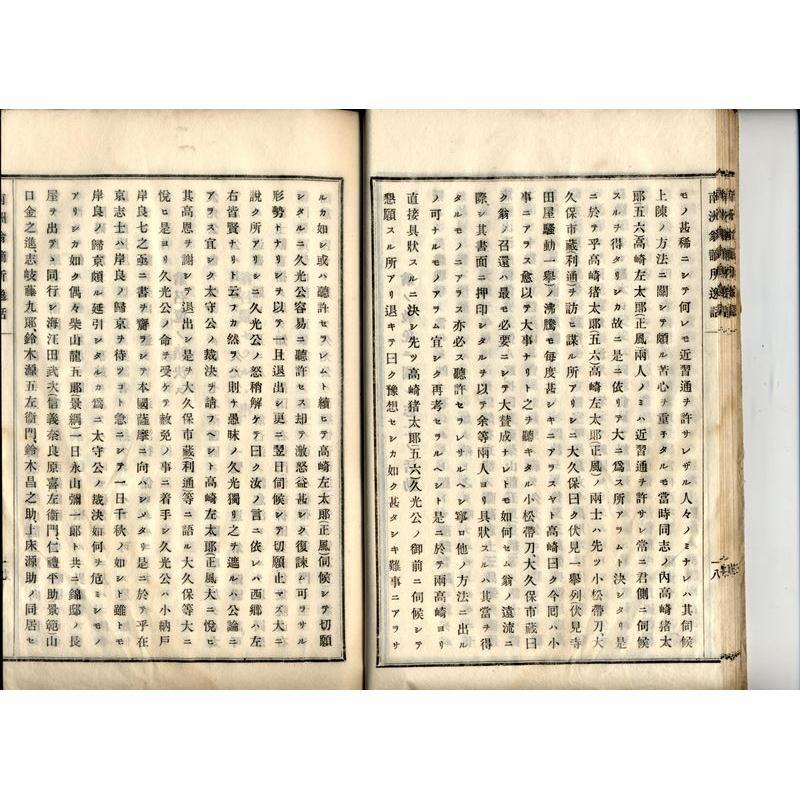 南洲翁謫所逸話
一八
モノ甚稀ニシテ何レモ近習通ヲ許サレザル人々ノミナレハ其伺候
上陳ノ方法ニ關シテ頗ル苦心ヲ重子タルモ當時同志ノ内高崎猪太
郎五六高崎左太郎(正風)兩人ノミハ近習通ヲ許サレ常ニ君側ニ伺候
スルヲ得タリシカ故ニ是ニ依リテ大ニ爲ス所アラムト決シタリ是
ニ於テ乎高崎猪太郎(五六)高崎左太郎(正風)ノ兩士ハ先ツ小松帶刀、大
久保市藏(利通)ヲ訪ヒ謀ル所アリシニ大久保曰ク伏見一擧列伏見寺
田屋騷動一擧)ノ沸騰モ毎度甚シキニアラスヤト高崎曰ク今囘ハ小
事ニアラス愈以テ大事ナリト之ヲ聽キタル小松帶刀大久保市藏曰
ク翁ノ召還ハ最モ必要ニシテ大贊成ナレトモ如何セム翁ノ遠流ニ
際シ其書面ニ押印シタルヲ以テ余等兩人ヨリ具狀スルハ其當ヲ得
タルモノニアラス亦必ス聽許セラレサルヘシ寧ロ他ノ方法ニ出ル
ノ可ナルモノアラム宜シク再考セラルヘシト是ニ於テ兩高崎ハ
直接具狀スルニ決シ先ツ高崎猪太郎(五六)久光公ノ御前ニ伺候シテ
懇願スル所アリ退キテ曰ク豫想セシカ如ク甚タシキ難事ニアラサ
ルカ如シ或ハ聽許セラレムト續ヒテ高崎左太郎(正風)伺候シテ切願
シタルニ久光公容易ニ聽許セラレス却テ激怒益甚シク復諫ム可ラサル
形勢トナリシヲ以テ一旦退出シ更ニ翌日伺候シテ切願止マズ大ニ
說ク所アリシニ久光公ノ怒稍解ケテ曰ク汝ノ言ニ依レバ西郷ハ左
右皆賢ナリト云フカ然ラハ則チ愚昧ノ久光獨リ之ヲ遮ルハ公論ニ
アラス宜シク太守公ノ裁決ヲ請フヘシト高崎左太郎正風大ニ悅ヒ
其高恩ヲ謝シテ退出シ是ヲ大久保市藏(利通)等ニ語ル大久保等大ニ
悅ヒ是ヨリ久光公ノ命ヲ受ケテ赦免ノ事ニ着手シ久光公ハ小納戶
岸良七之丞ニ書ヲ齎ラシテ本國薩摩ニ向ハシメタリ是ニ於テ乎在
京志士ハ岸良ノ歸京ヲ待ツコト急ニシテ一日千秋ノ如シト雖トモ
岸良ノ歸京頗ル延引シタルカ爲ニ太守公ノ裁決如何ヲ危ミシモノ
アリシカ如ク偶々柴山龍五郎(景綱)一日永山彌一郎ト共ニ錦邸ノ長
屋ヲ出テヽ同行シ海江田武次(信義)奈良原喜左衞門、仁禮平助景範)山
口金之進、志岐藤九郎鈴木源五左衞門、鈴木昌之助、上床源助ノ同居セ